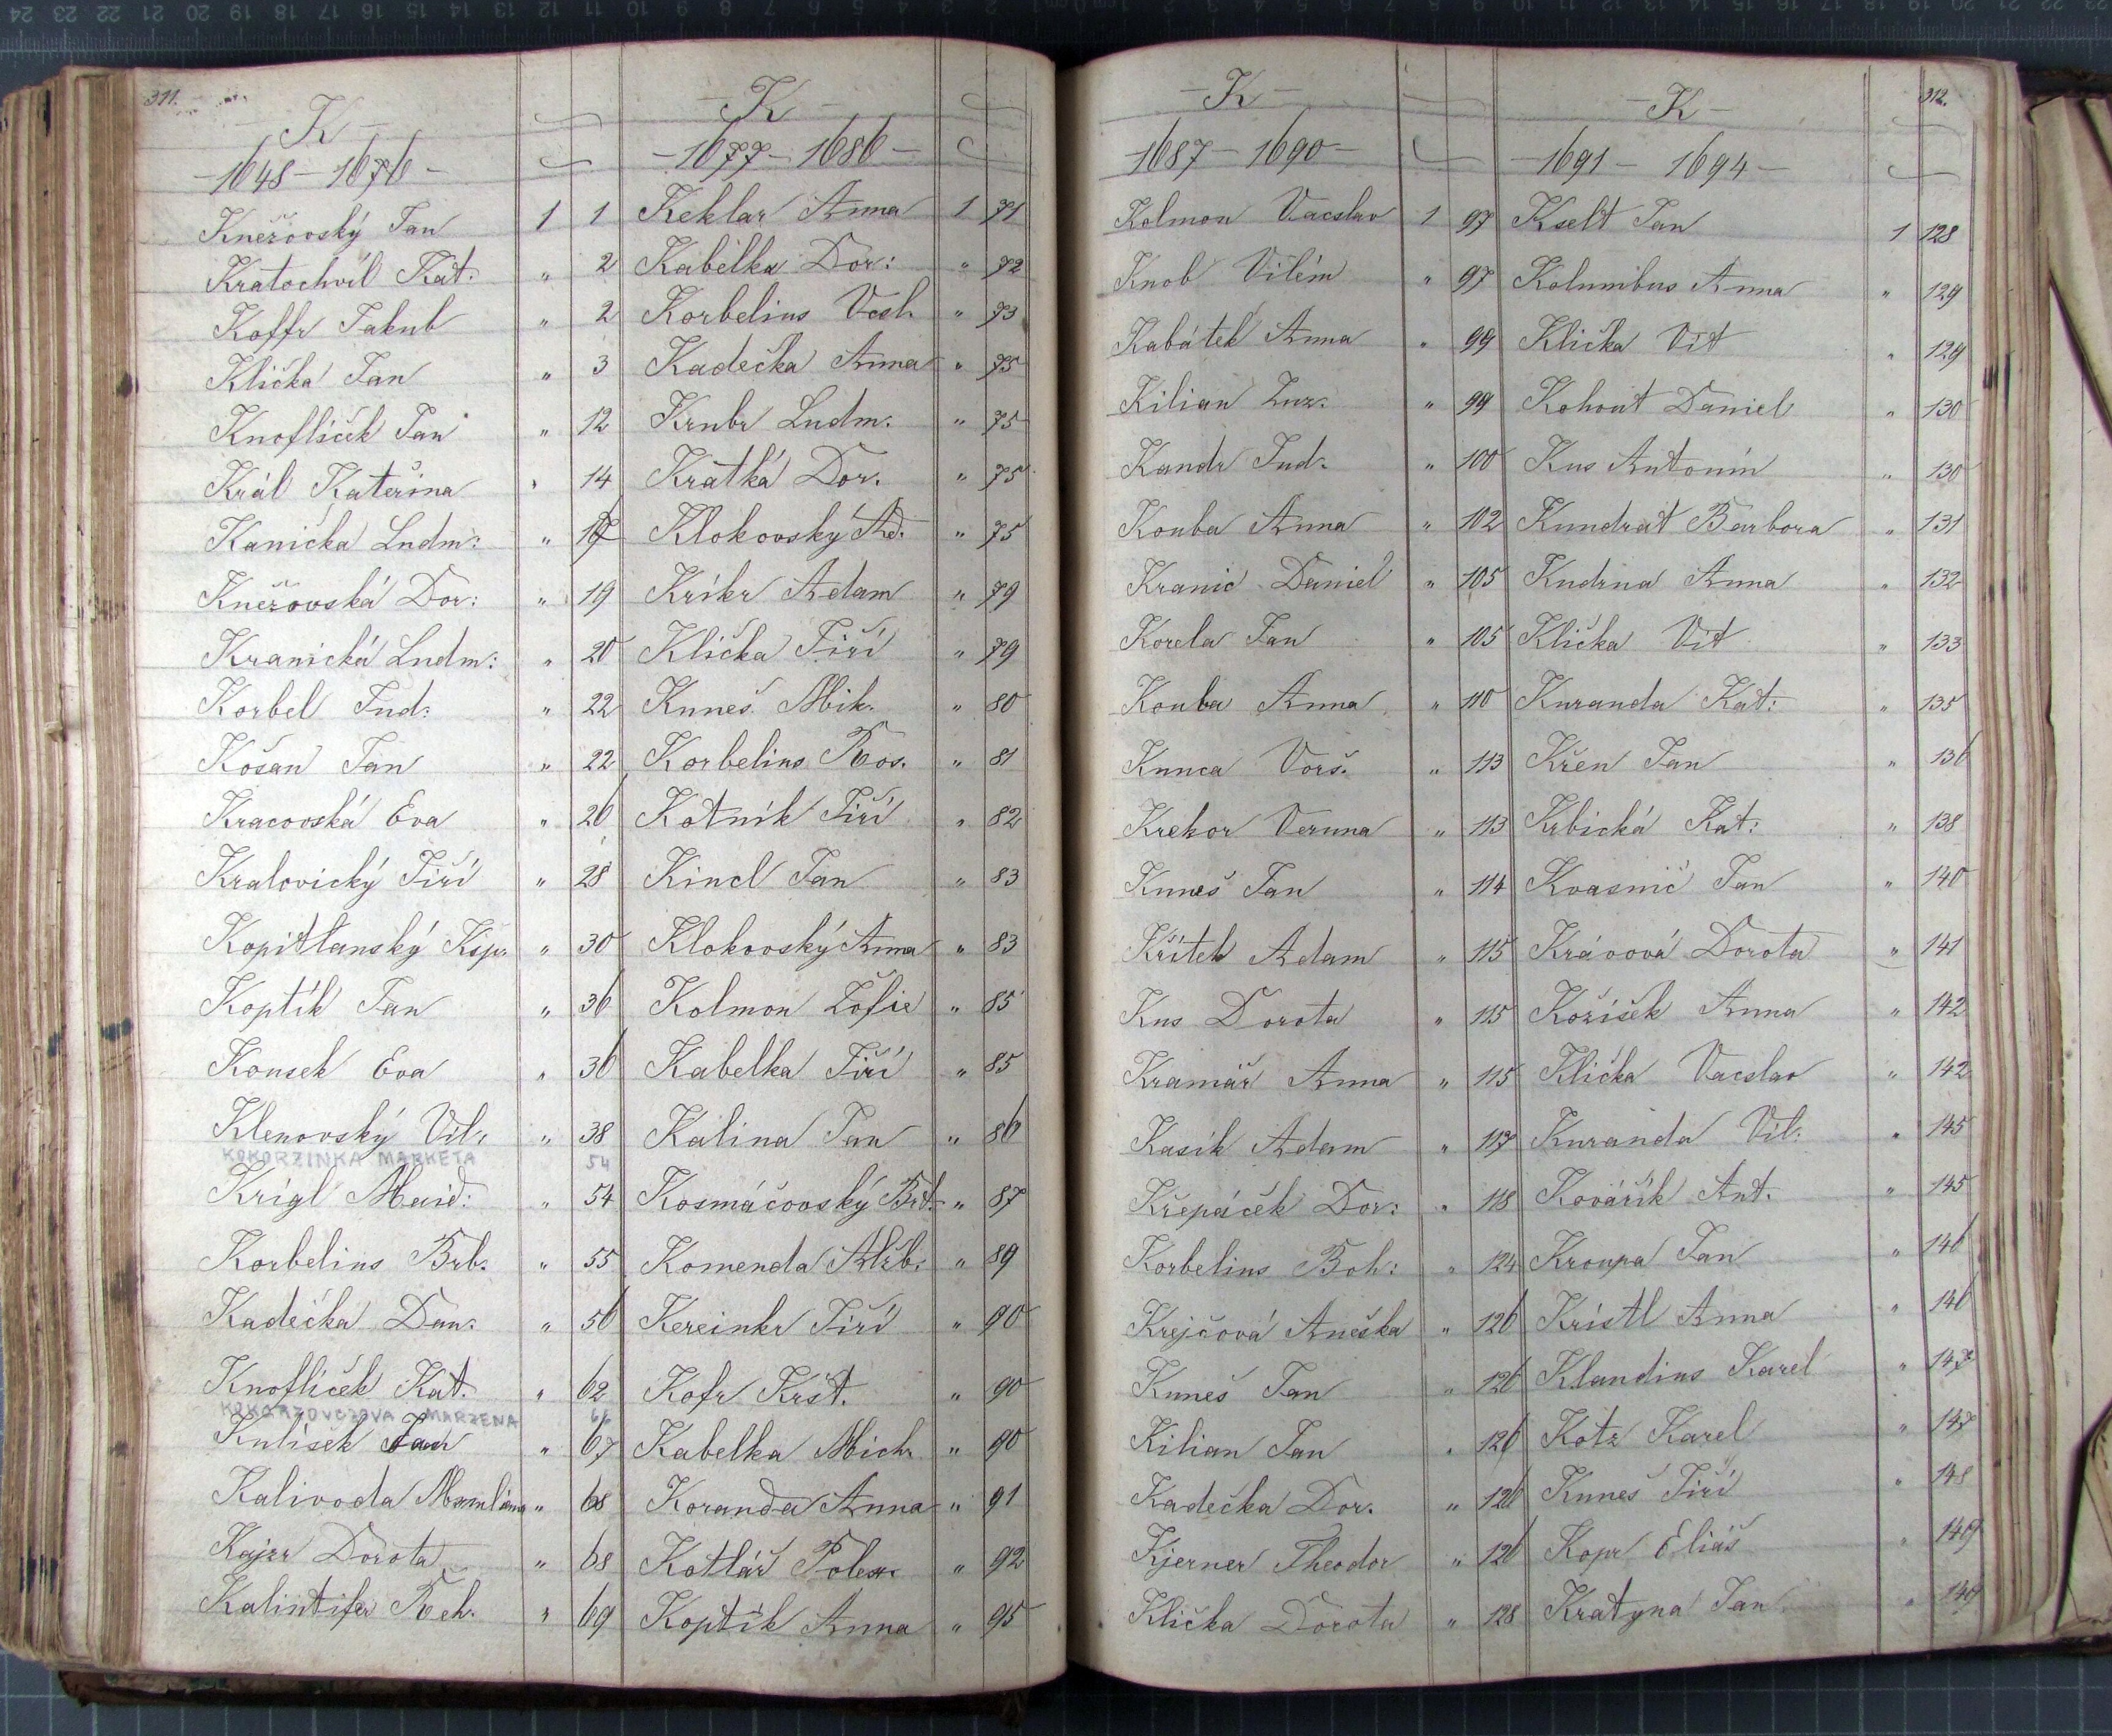 311.
K
1648 – 1676
Kněžovský Jan 1 1
Kratochvíl Kat: „ 2
Koffr Jakub „ 2
Klička Jan „ 3
Knoflíček Jan „ 12
Král Kateřina „ 14
Kanička Ludm: „ 17
Kněžovská Dor: „ 19
Kranická Ludm: „ 20
Korbel Jud: „ 22
Košan Jan „ 22
Kracovská Eva „ 26
Kralovický Jiří „ 28
Kopitlanský Kšp. „ 30
Koptík Jan „ 36
Konsek Eva „ 36
Klenovský Vil. „ 38
KOKORZINKA MARKETA 54
Krigl Maid: „ 54
Korbelius Brb. „ 55
Kadečka Dan. „ 56
Knoflíček Kat. „ 62
KOKORZOVCZOVA MARZENA
Kulíšek Jan „ 67
Kalivoda „ 68
Kajzr Dorota „ 68
Kalintifer Řeh. „ 69
– K –
– 1677 – 1686 –
Keklar Anna 1 71
Kabelka Dor: „ 72
Korbelius Vcsl. „ 73
Kadečka Anna „ 75
Krubr Ludm. „ 75
Kratká Dor. „ 75
Klokovský Ad. „ 75
Krikr Adam „ 79
Klička Jiří „ 79
Kuneš Mik. „ 80
Korbelius Ros. „ 81
Kotnik Jiří „ 82
Kincl Jan „ 83
Klokovský Anna „ 83
Kolmon Žofie „ 85
Kabelka Jiří „ 85
Kalina Jan „ 86
Kosmáčovský Brt. „ 87
Komenda Alžb. „ 89
Kereinkr Jiří „ 90
Kofr Kršt. „ 90
Kabelka Mich. „ 90
Koranda Anna „ 91
Kotlář Polex. „ 92
Koptík Anna „ 95
– K –
1687 – 1690 –
Kolmon Vacslav 1 97
Knob Vilém „ 97
Kabátek Anna „ 99
Kilian Zuz. „ 99
Kandr Jud. „ 100
Kouba Anna „ 102
Kranic Daniel „ 105
Korela Jan „ 105
Kouba Anna „ 110
Kunca Vorš. „ 113
Krekor Verunna „ 113
Kuneš Jan „ 114
Křítek Adam „ 115
Kus Dorota „ 115
Kramář Anna „ 115
Kasík Adam „ 117
Křepáček Dor: „ 118
Korbelius Boh: „ 124
Krejčová Aneška „ 126
Kuneš Jan „ 126
Kilian Jan „ 126
Kadečka Dor. „ 126
Kjerner Theodor „ 126
Klička Dorota „ 128
312.
– K –
– 1691 – 1694 –
Kselt Jan 1 128
Kolumbus Anna „ 129
Klička Vít „ 129
Kohout Daniel „ 130
Kus Antonín „ 130
Kundrat Barbora „ 131
Kudrna Anna „ 132
Klička Vít „ 133
Kuranda Kat: „ 135
Křen Jan „ 136
Krbická Kat: „ 138
Kvasnič Jan „ 140
Krávová Dorota „ 141
Kožíšek Anna „ 142
Klička Vacslav „ 142
Kuranda Vil. „ 145
Kovářík Ant. „ 145
Kroupa Jan „ 146
Kristl Anna „ 146
Klaudius Karel „ 147
Kotz Karel „ 147
Kuneš Jiří „ 148
Kopr Eliáš „ 149
Kratyna Jan „ 149